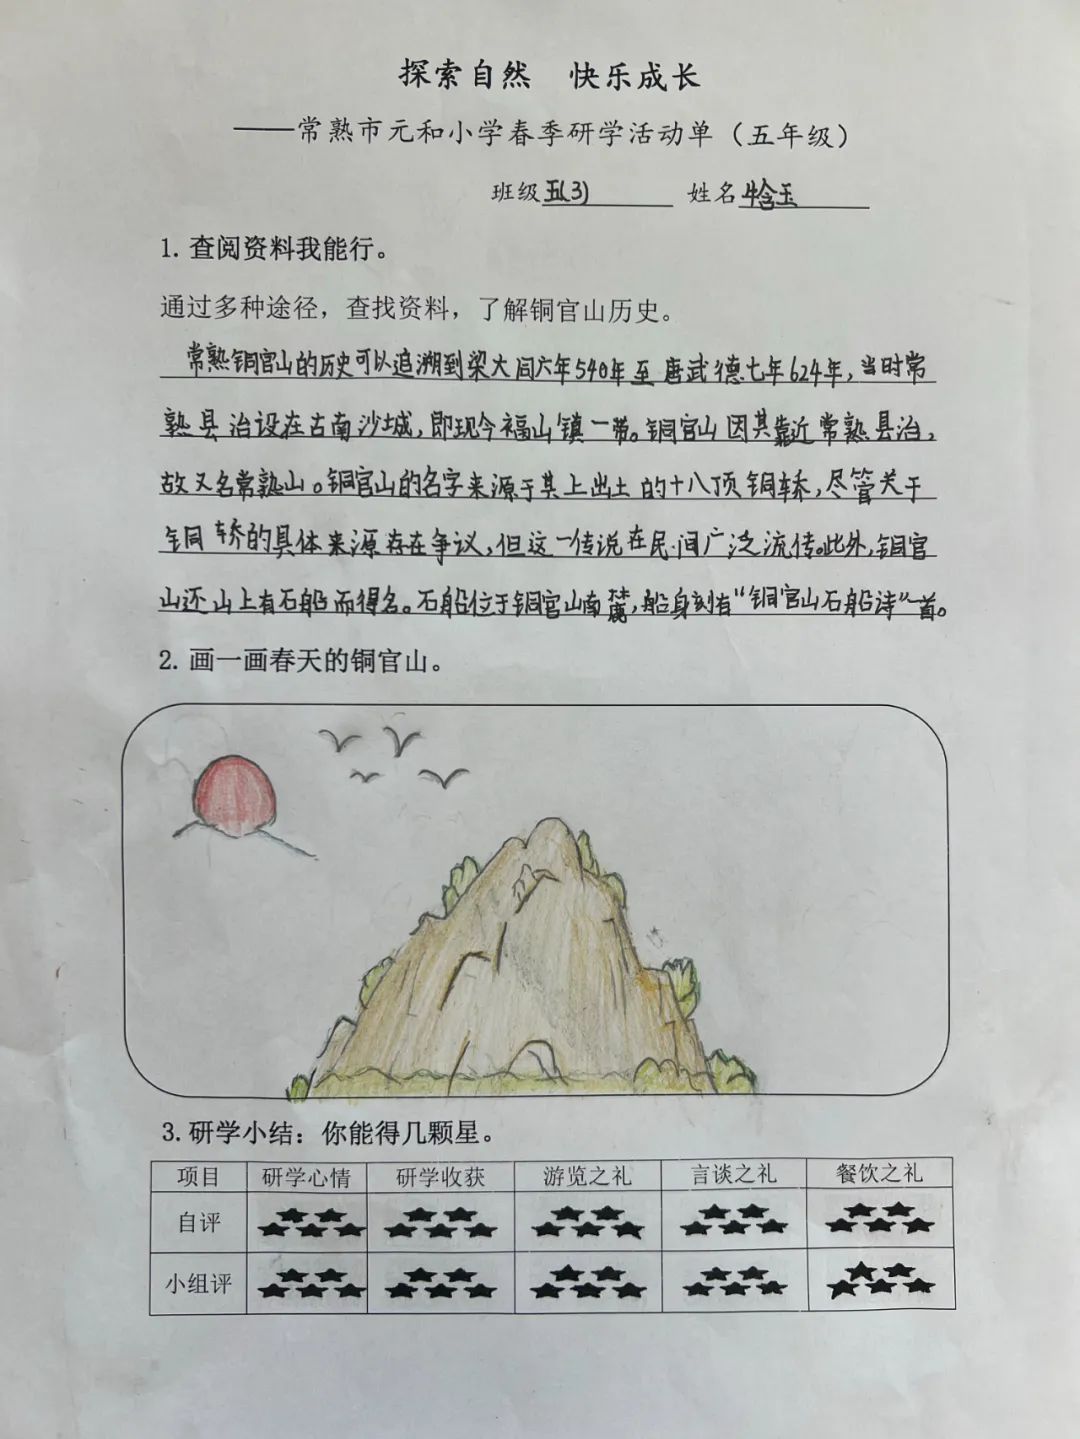 探索自然 快乐成长
——常熟市元和小学春季研学活动单（五年级）
班级五(3) 姓名牛含玉
1. 查阅资料我能行。
通过多种途径，查找资料，了解铜官山历史。
常熟铜官山的历史可以追溯到梁大同六年540年至唐武德七年624年，当时常
熟县治设在古南沙城，即现今福山镇一带。铜官山因其靠近常熟县治，
故又名常熟山。铜官山的名字来源于其上出土的十八顶铜轿，尽管关于
铜轿的具体来源存在争议，但这一传说在民间广泛流传。此外，铜官
山还山上有石船而得名。石船位于铜官山南麓，船身刻有“铜官山石船诗”一首。
2. 画一画春天的铜官山。
3. 研学小结：你能得几颗星。
项目 研学心情 研学收获 游览之礼 言谈之礼 餐饮之礼
自评 ★★★★★ ★★★★★ ★★★★★ ★★★★★ ★★★★★
小组评 ★★★★★ ★★★★★ ★★★★★ ★★★★★ ★★★★★